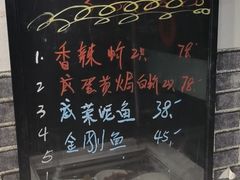 1. 香辣蚧 2只 78.-
2. 咸蛋黄焗白蚧 2只 78.-
3. 咸菜泥鱼 38.-
4. 金刚鱼 45.-
5